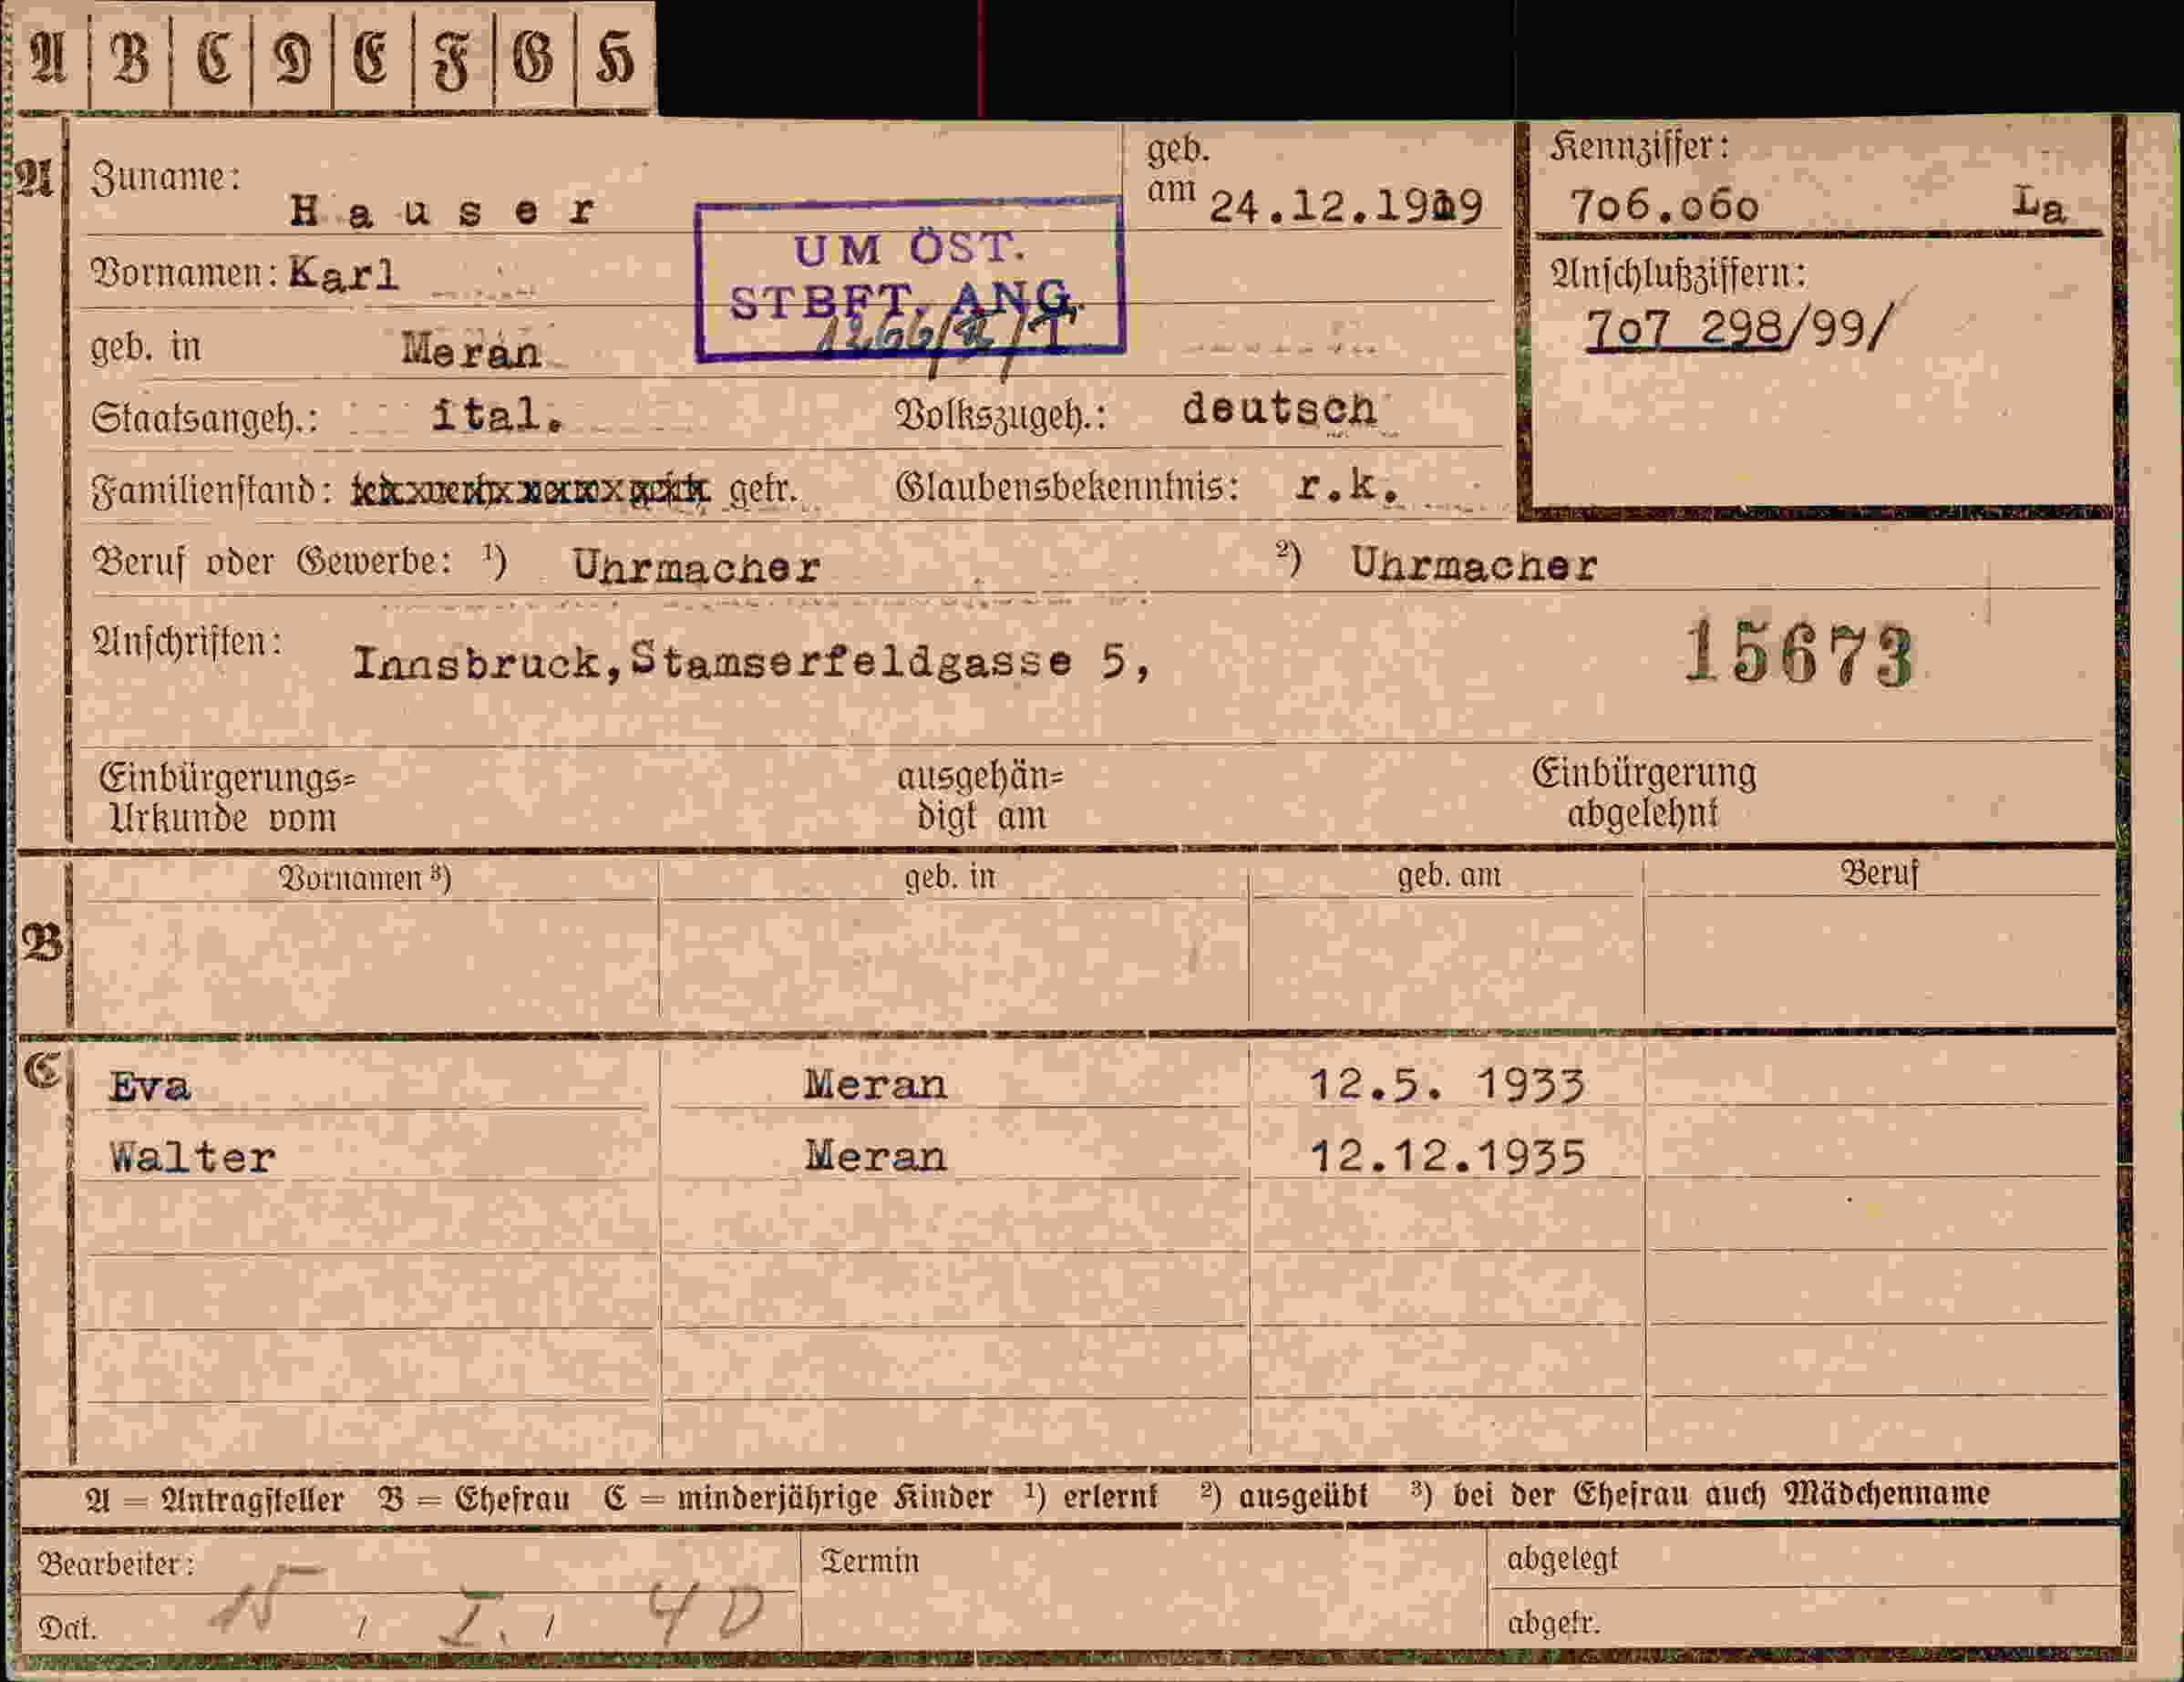 A B C D E F G H
A
Zuname: Hauser
geb. am 24.12.19
Kennziffer:
706.060 La
UM ÖST.
STBFT. ANG.
Vornamen: Karl
Anschlußziffern:
707 298/99/
geb. in Meran
Staatsangeh.: ital. Volkszugeh.: deutsch
Familienstand: getr. Glaubensbekenntnis: r.k.
Beruf oder Gewerbe: ¹) Uhrmacher ²) Uhrmacher
Anschriften: Innsbruck,Stamserfeldgasse 5, 15673
Einbürgerungs= ausgehän= Einbürgerung
Urkunde vom digt am abgelehnt
B
Vornamen ³) geb. in geb. am Beruf
C
Eva Meran 12.5. 1933
Walter Meran 12.12.1935
A = Antragsteller B = Ehefrau C = minderjährige Kinder ¹) erlernt ²) ausgeübt ³) bei der Ehefrau auch Mädchenname
Bearbeiter: Termin abgelegt
Dat. 15 / I. / 40 abgetr.